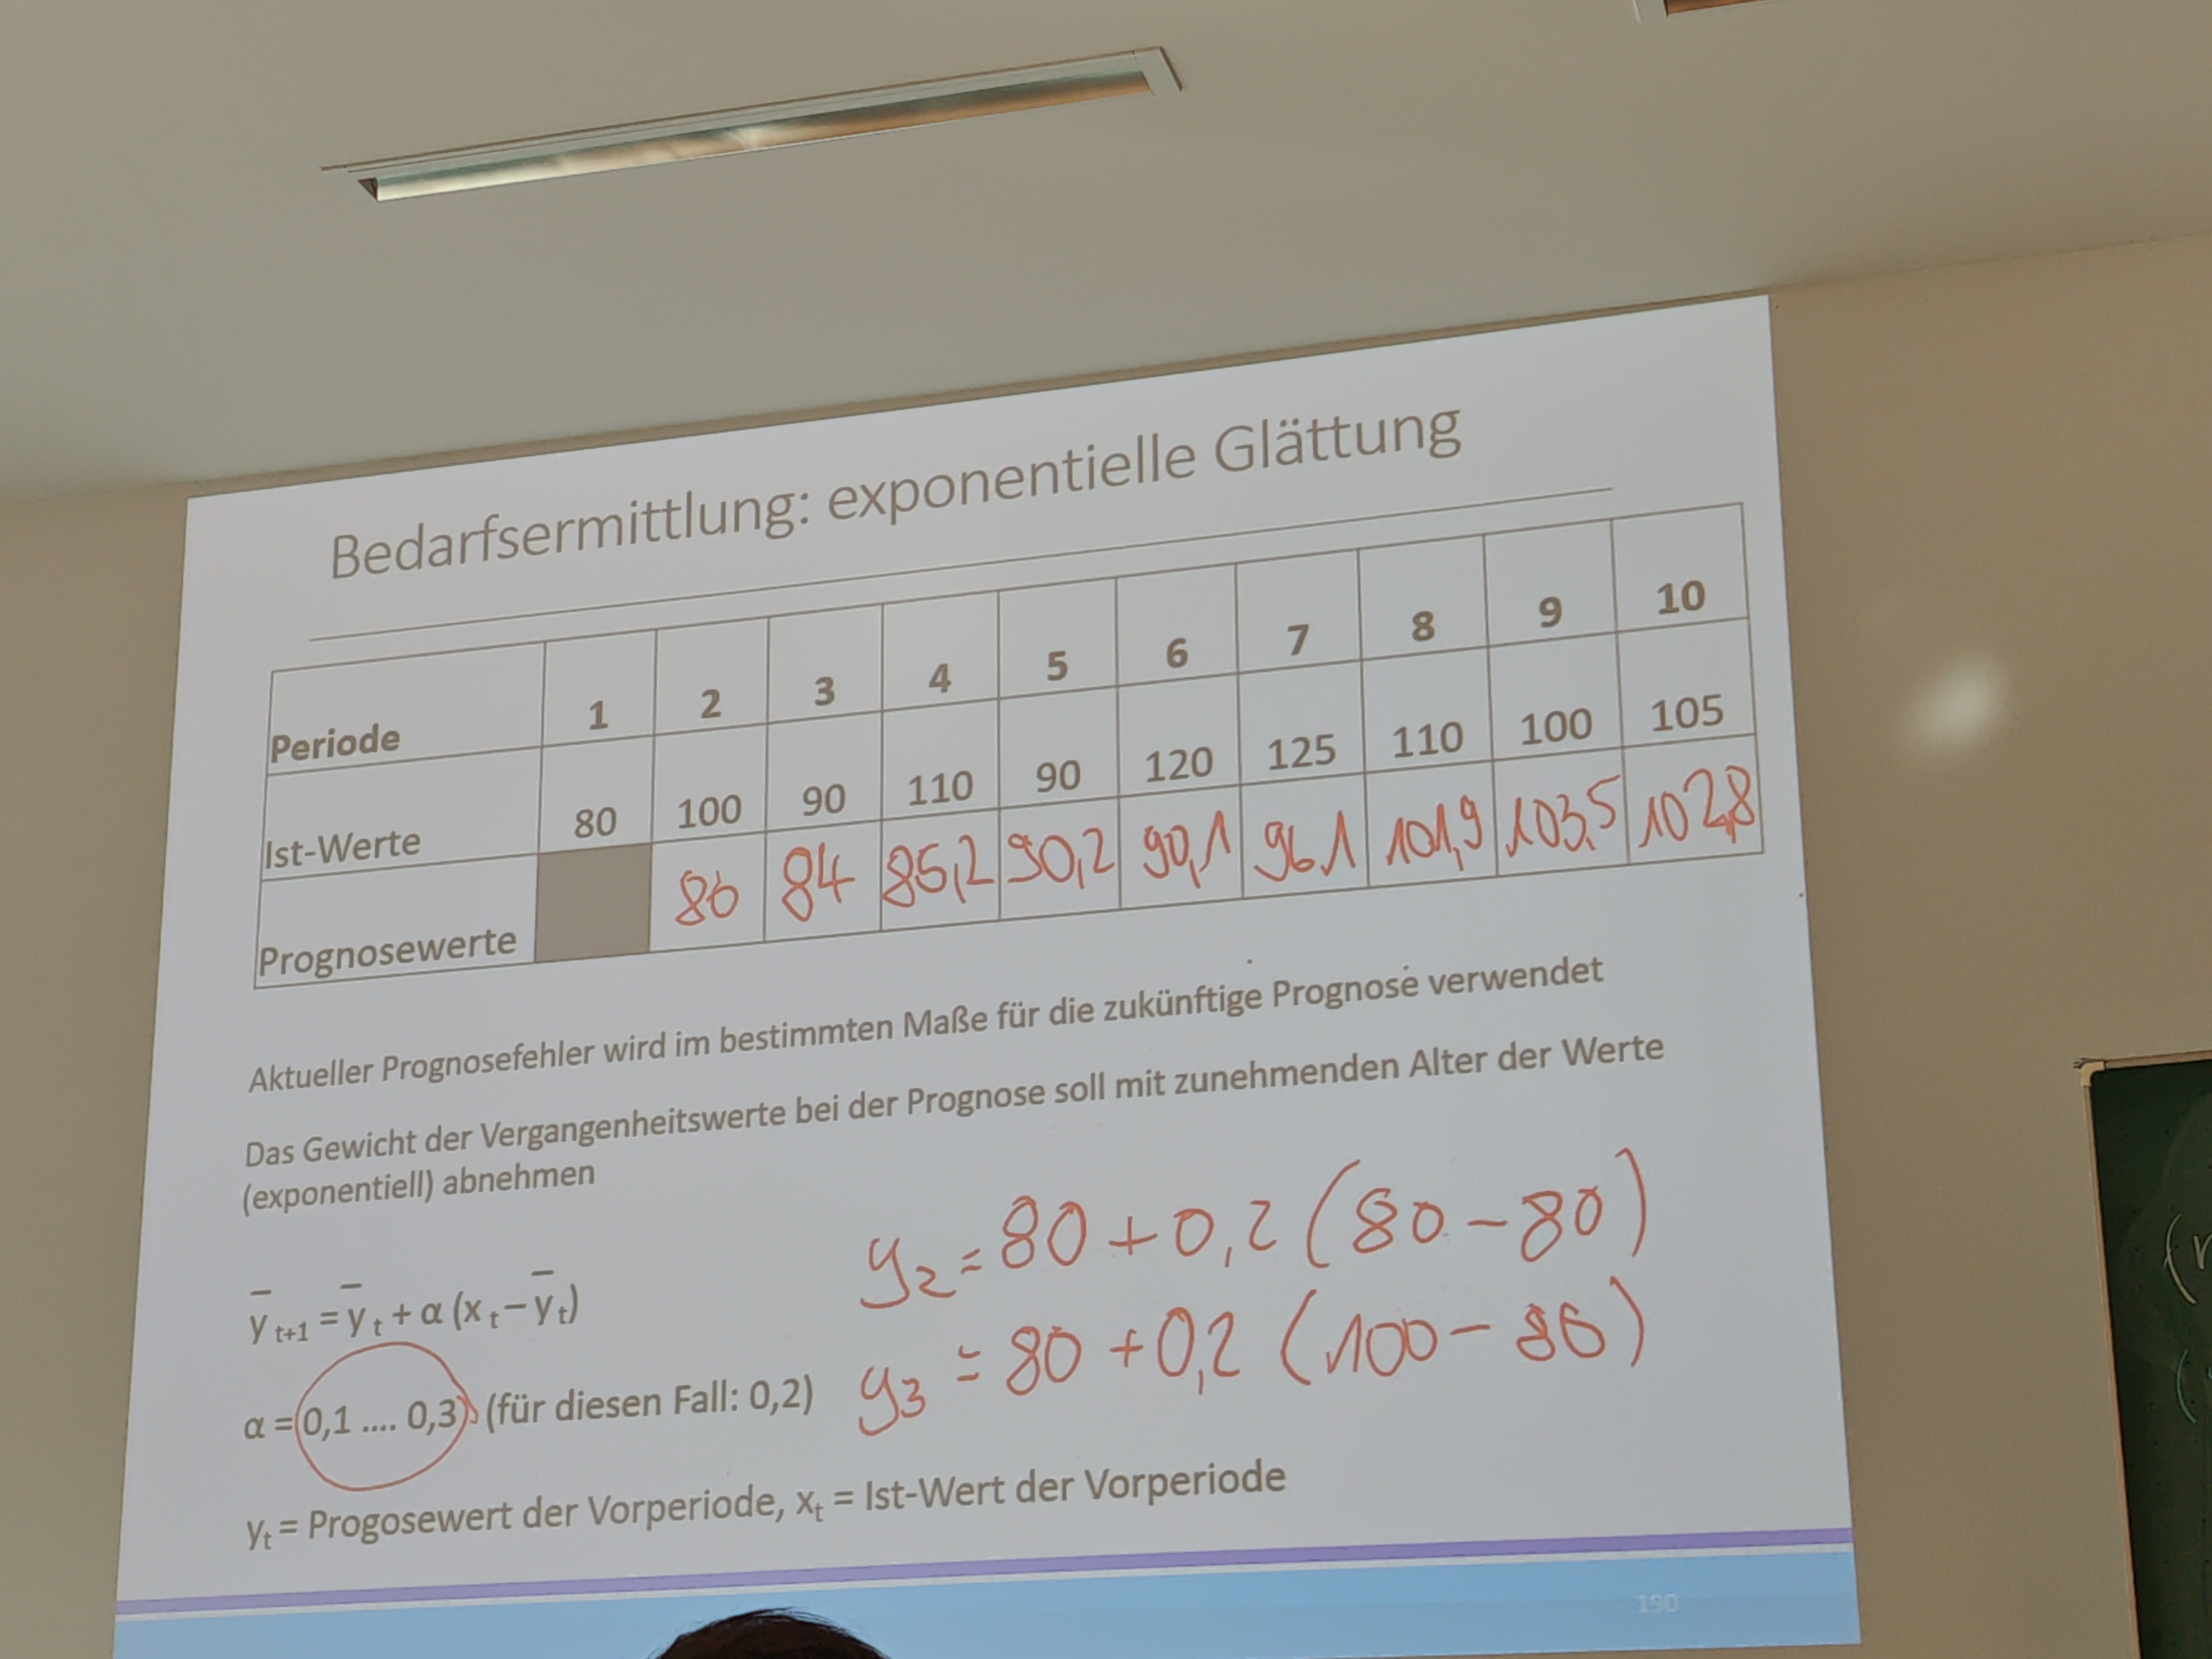 Bedarfsermittlung: exponentielle Glättung
Periode 1 2 3 4 5 6 7 8 9 10
Ist-Werte 80 100 90 110 90 120 125 110 100 105
Prognosewerte 80 84 85,2 90,2 90,1 96.1 101,9 103,5 102,8
Aktueller Prognosefehler wird im bestimmten Maße für die zukünftige Prognose verwendet
Das Gewicht der Vergangenheitswerte bei der Prognose soll mit zunehmenden Alter der Werte
(exponentiell) abnehmen
ȳ t+1 = ȳ t + α (x t – ȳ t)
y2 = 80 + 0,2 (80 - 80)
α = 0,1 .... 0,3) (für diesen Fall: 0,2)
y3 = 80 + 0,2 (100 - 80)
yt = Progosewert der Vorperiode, xt = Ist-Wert der Vorperiode
190